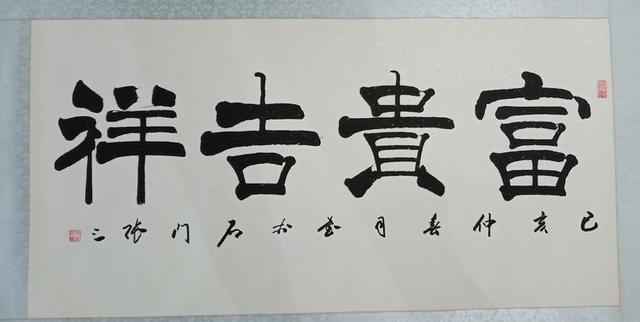 富貴吉祥
己亥仲春月石门张三